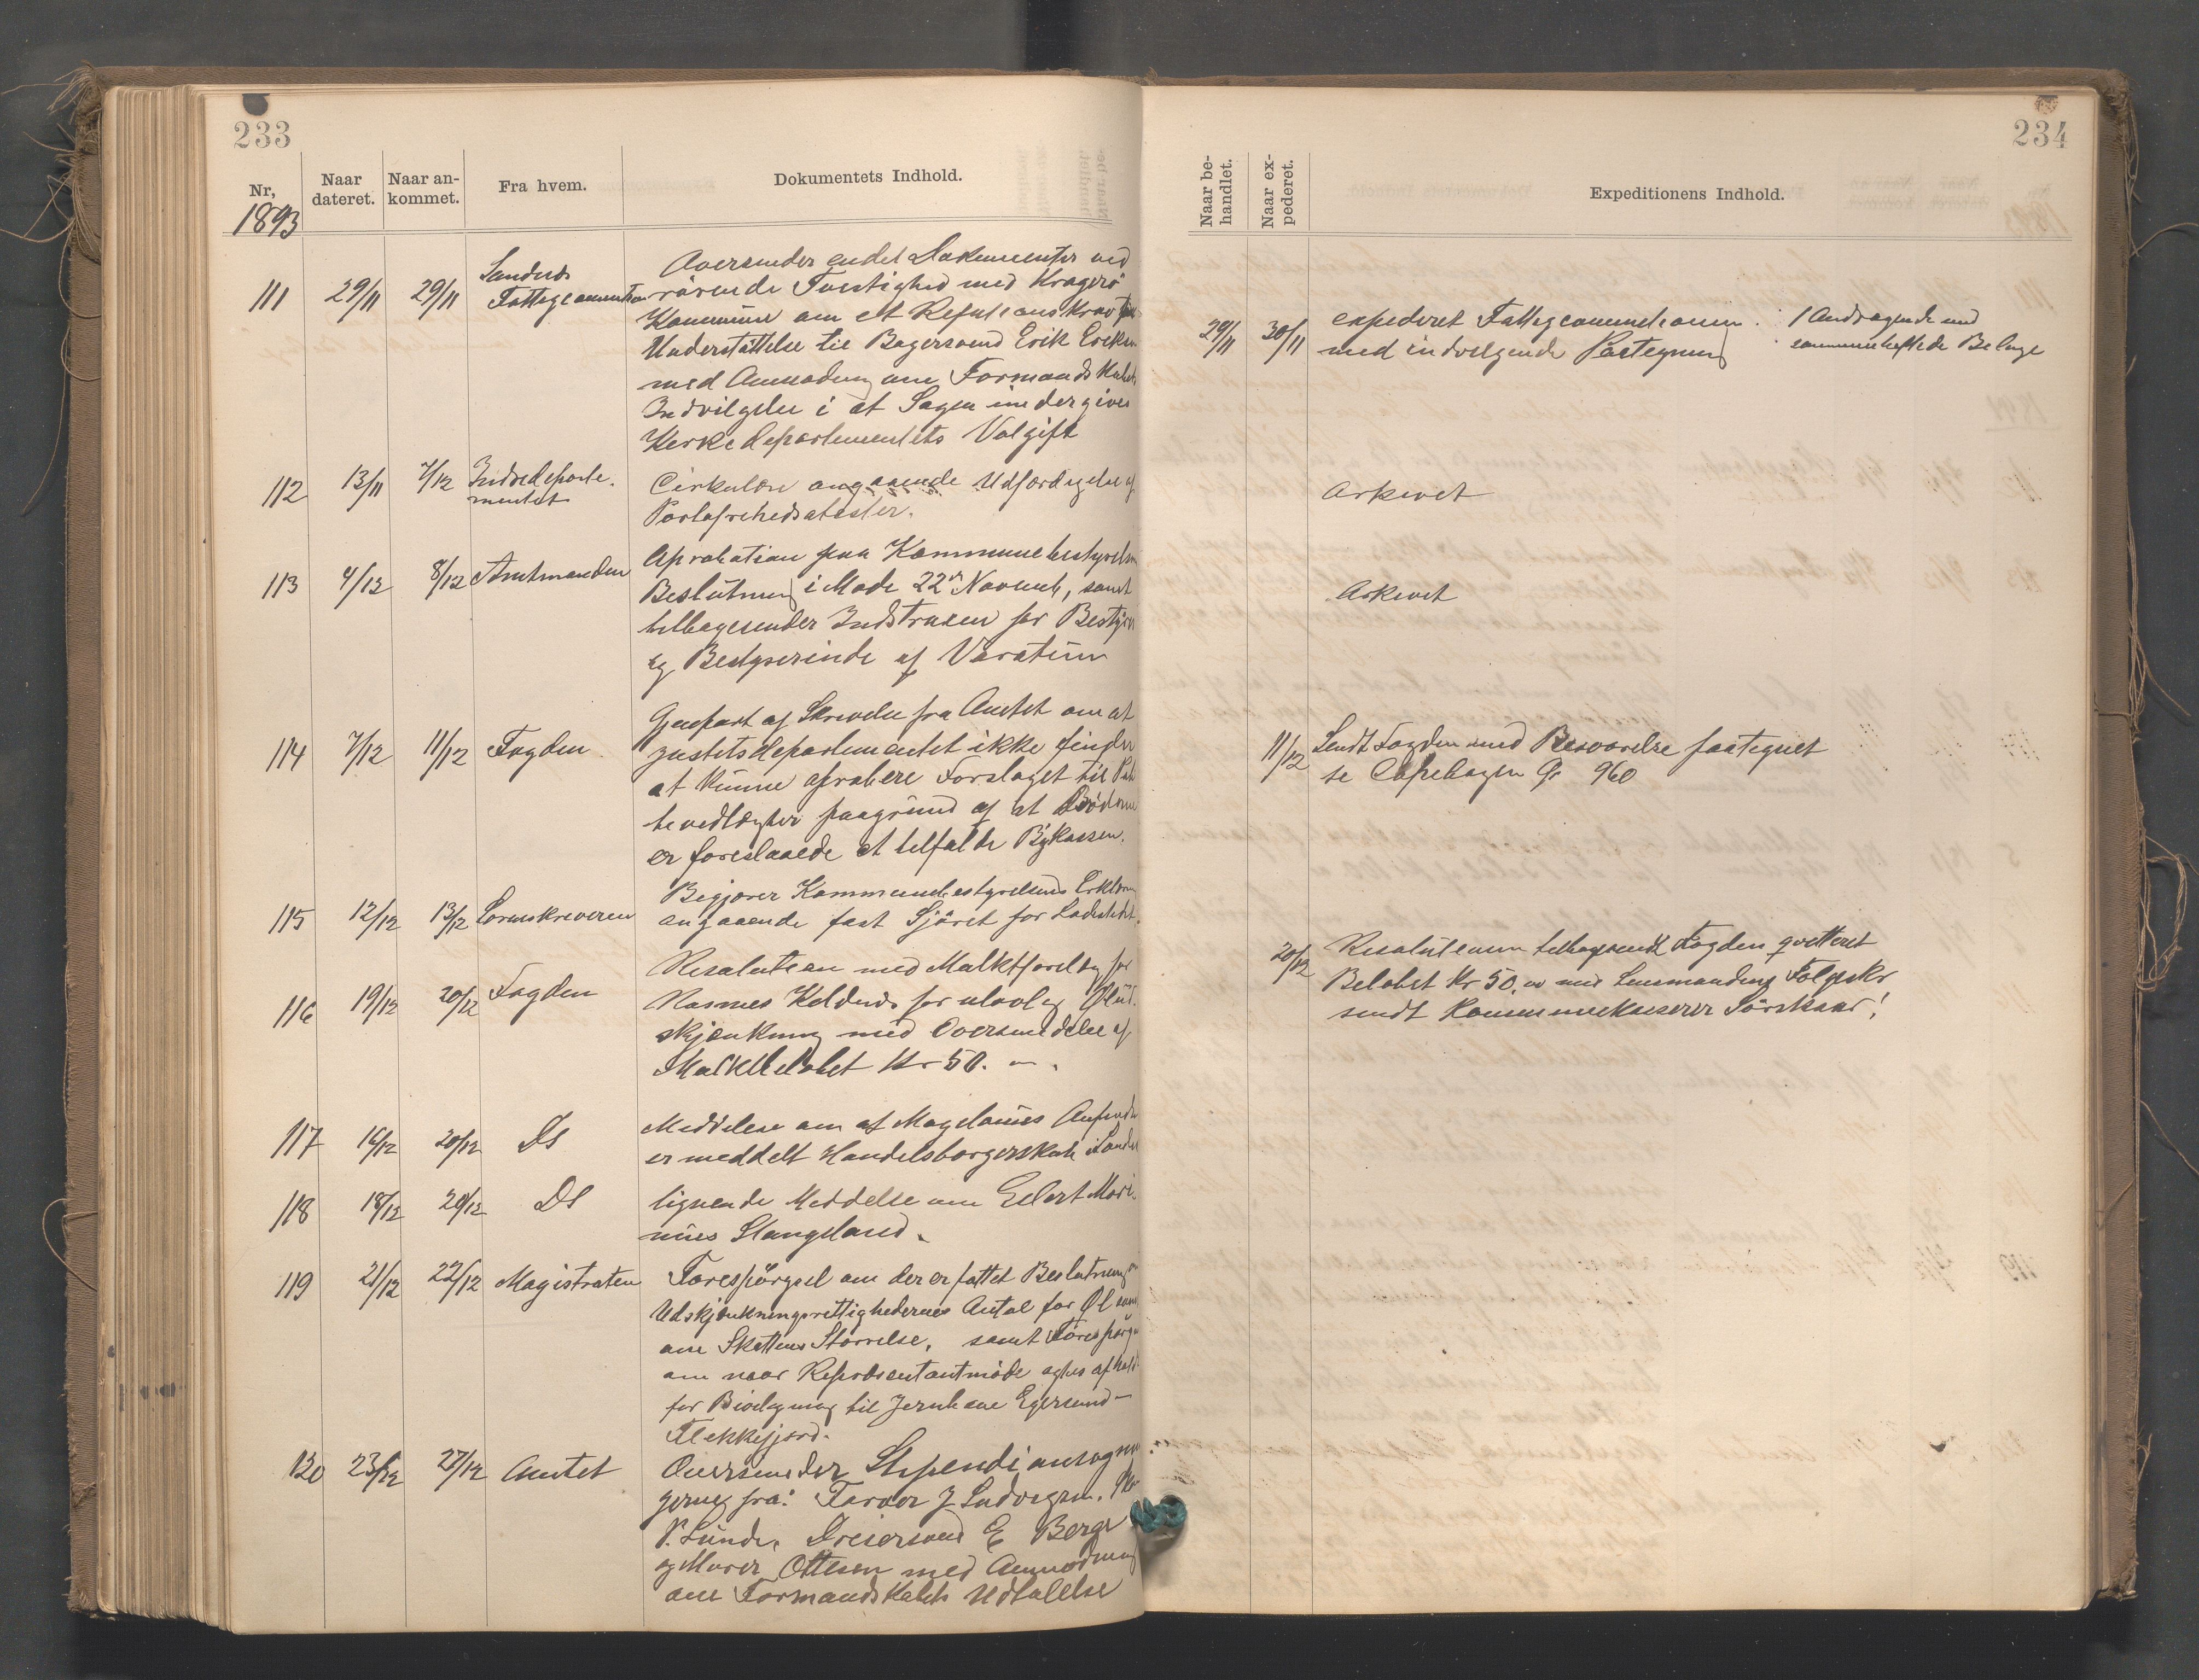 233
Nr,
Naar
dateret.
Naar an-
kommet.
Fra hvem.
Dokumentets Indhold.
1893
111 29/11 29/11 Sandnes
Fattigcommission
Oversender endel Dokumenter ved
rörende Tvistighed med Kragerö
Kommune om et Refusionskrav for
Understöttelse til Bagersvend Erik
med Anmodning om Formandskabets
Indvilgelse i at Sagen
Kirkedepartementets
112 13/11 7/12 Indredeparte-
mentet
Cirkulære angaaende Udfærdigelse af
Portofrihedsatester.
113 4/12 8/12 Amtmanden
Aprobation paa Kommunebestyrelsens
Beslutning i Möde 22de Novemb, samt
tilbagesender Instruxen for Bestyrer
og Bestyrerinde af
114 7/12 11/12 Fogden
Gjenpart af Skrivelse fra Amtet om at
Justitsdepartementet ikke finder
at kunne aprobere Forslaget til
tivedtægter paagrund af at Böderne
er foreslaaede at tilfalde Bykassen.
115 12/12 13/12 Sorenskriveren
Begjærer Kommunebestyrelsens Erklæring
angaaende fast for Ladestedet.
116 19/12 20/12 Fogden
Resolution med Mulktforelæg for
Rasmus for ulovlig Ølud-
skjænkning med Oversendelse af
Mulktbelöbet Kr 50. „ .
117 16/12 20/12 Ds
Meddelelse om at
er meddelt Handelsborgerskab i Sandnes
118 18/12 20/12 Ds
lignende Meddelse om Eilert Mari-
nius Stangeland.
119 21/12 22/12 Magistraten
Forespörgsel om der er fattet Beslutning om
Udskjænkningsrettighedernes Antal for Øl samt
om Skattens Störrelse, samt Forespörgsel
om naar Repræsentantmöde agtes afholdt
for Bevilgning til Jernbane Egersund –
Flekkefjord.
120 23/12 27/12 Amtet
Oversender Stipendieansögnin
gerne fra: Farver J Ludvigsen,
P. Lunde, Dreiersvend E Berge
og Murer Ottesen med Anmodning
om Formandskabets Udtalelse
234
Naar be-
handlet.
Naar ex-
pederet.
Expeditionens Indhold.
29/11 30/11
expederet Fattigcommissionen
med indvilgende Paategning
1 Andragende med
sammenheftede Belage
Arkivet
Arkivet
11/12
Sendt Fogden med Besvarelse paategnet
se Copibogen 960
20/12
Resolutionen tilbagesendt Fogden qvitteret
Belöbet Kr 50. „ med Lensmandens Fölgeskr
sendt Kommunekasserer